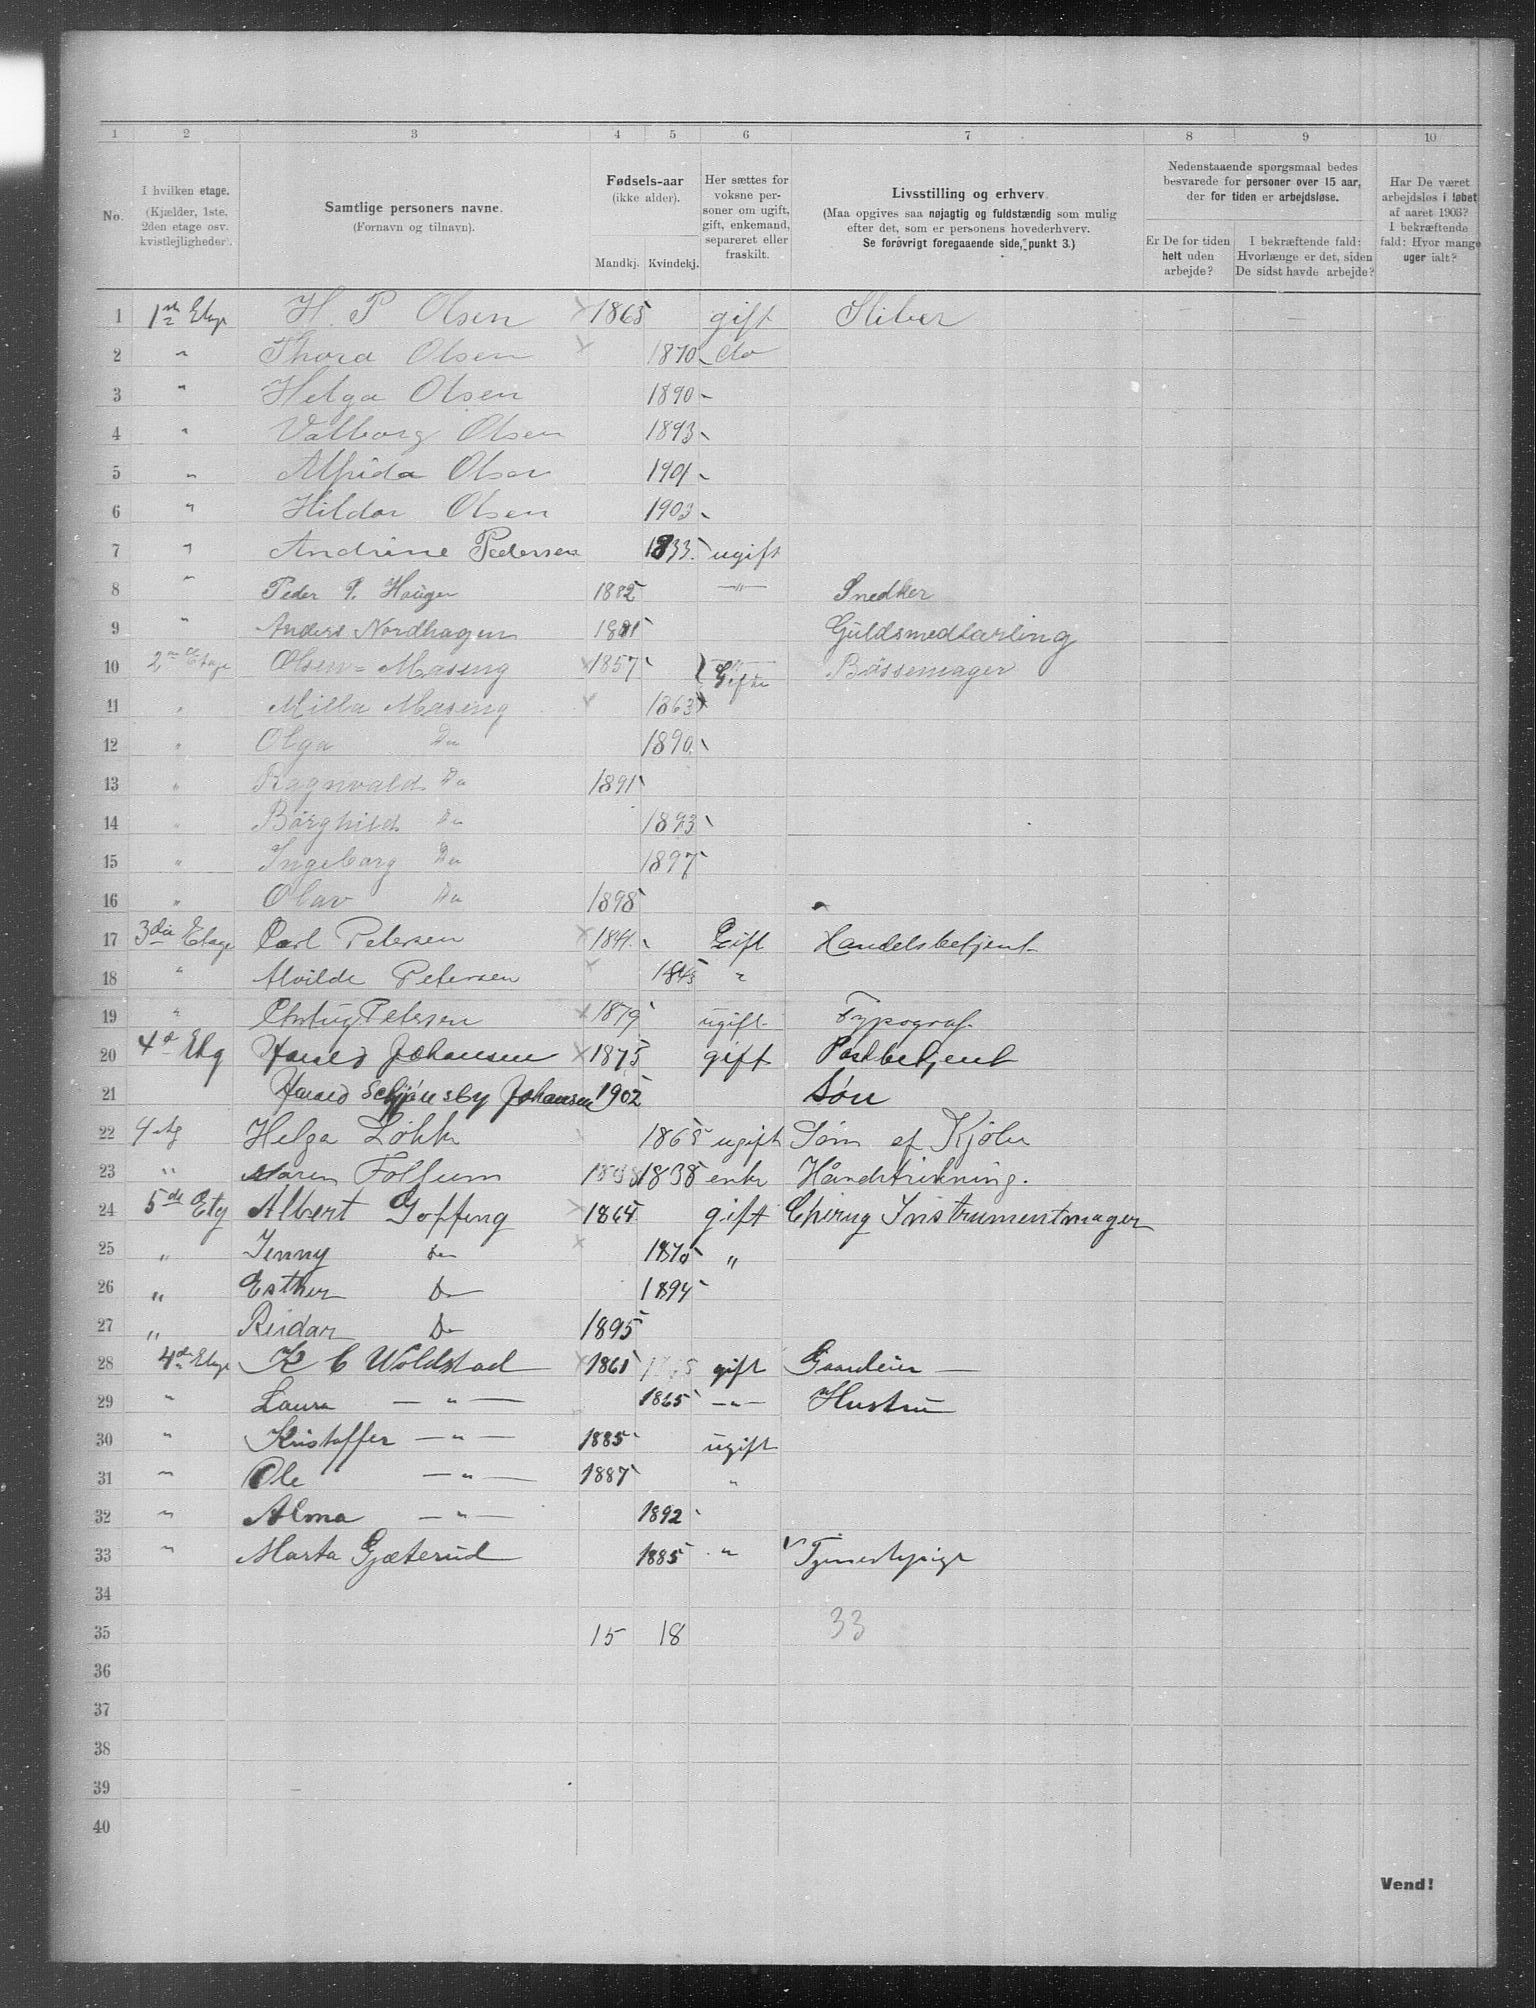 1 2 3 4 5 6 7 8 9 10
No.
I hvilken etage.
(Kjælder, 1ste,
2den etage osv.
kvistlejligheder).
Samtlige personers navne.
(Fornavn og tilnavn).
Fødsels-aar
(ikke alder).
Mandkj. Kvindekj.
Her sættes for
voksne per-
soner om ugift,
gift, enkemand,
separeret eller
fraskilt.
Livsstilling og erhverv.
(Maa opgives saa nøjagtig og fuldstændig som mulig
efter det, som er personens hovederhverv.
Se forøvrigt foregaaende side, punkt 3.)
Nedenstaaende spørgsmaal bedes
besvarede for personer over 15 aar,
der for tiden er arbejdsløse.
Er De for tiden
helt uden
arbejde?
I bekræftende fald:
Hvorlænge er det, siden
De sidst havde arbejde?
Har De været
arbejdsløs i løbet
af aaret 1903?
I bekræftende
fald: Hvor mange
uger ialt?
1 1ste Etage H. P Olsen 1865 gift Sliber
2 " Thora Olsen 1870 do
3 " Helga Olsen 1890
4 " Valborg Olsen 1893
5 " Alfrida Olsen 1901
6 " Hildar Olsen 1903
7 " Andrine Pedersen 1833 ugift
8 " Peder P. Hauger 1882 " Snedker
9 " Anders Nordhagen 1881 Guldsmedlærling
10 2n Etage Olsen-Maseng 1857 Gifte Bøssemager
11 " Milla Maseng 1863
12 " Olga Do 1890
13 " Ragnvald Do 1891
14 " Borghild Do 1893
15 " Ingeborg Do 1897
16 " Olav Do 1898
17 3die Etage Carl Petersen 1841 Gift Handelsbetjent
18 " Alvilde Petersen 1843 "
19 " Petersen 1879 ugift Typograf
20 4d Etg Harald Johansen 1875 gift Postbetjent
21 Harald Schjønsby Johansen 1902 Søn
22 4 etg Helga Løkke 1868 ugift Søm af Kjoler
23 " Maren Follum 1838 enke Håndstrikning.
24 5de Etg Albert Goffeng 1864 gift Chirug Instrumentmager
25 " Jenny Do 1870 "
26 " Esther Do 1894
27 " Reidar Do 1895
28 4de Etage K C Woldstad 1861 gift Gaardeier
29 " Laura — " — 1865 — " — Hustru
30 " Kristoffer — " — 1885 ugift
31 " Ole — " — 1887 "
32 " Alma — " — 1892
33 " Marta Gjæterud 1885 " Tjenestepige
34
35 15 18 33
36
37
38
39
40
Vend!